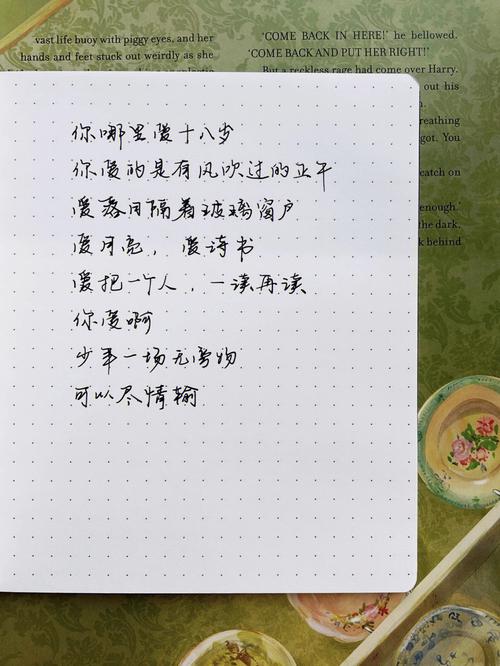 vast life buoy with piggy eyes, and her
hands and feet stuck out weirdly as she
‘COME BACK IN HERE!’ he bellowed.
‘COME BACK AND PUT HER RIGHT!’
But a reckless rage had come over Harry.
out his
got. You
enough.’
the dark,
behind
你哪里爱十八岁
你爱的是有风吹过的正午
爱落日隔着玻璃窗户
爱月亮，爱诗书
爱把一个人，一读再读
你爱啊
少年一场无旁物
可以尽情输